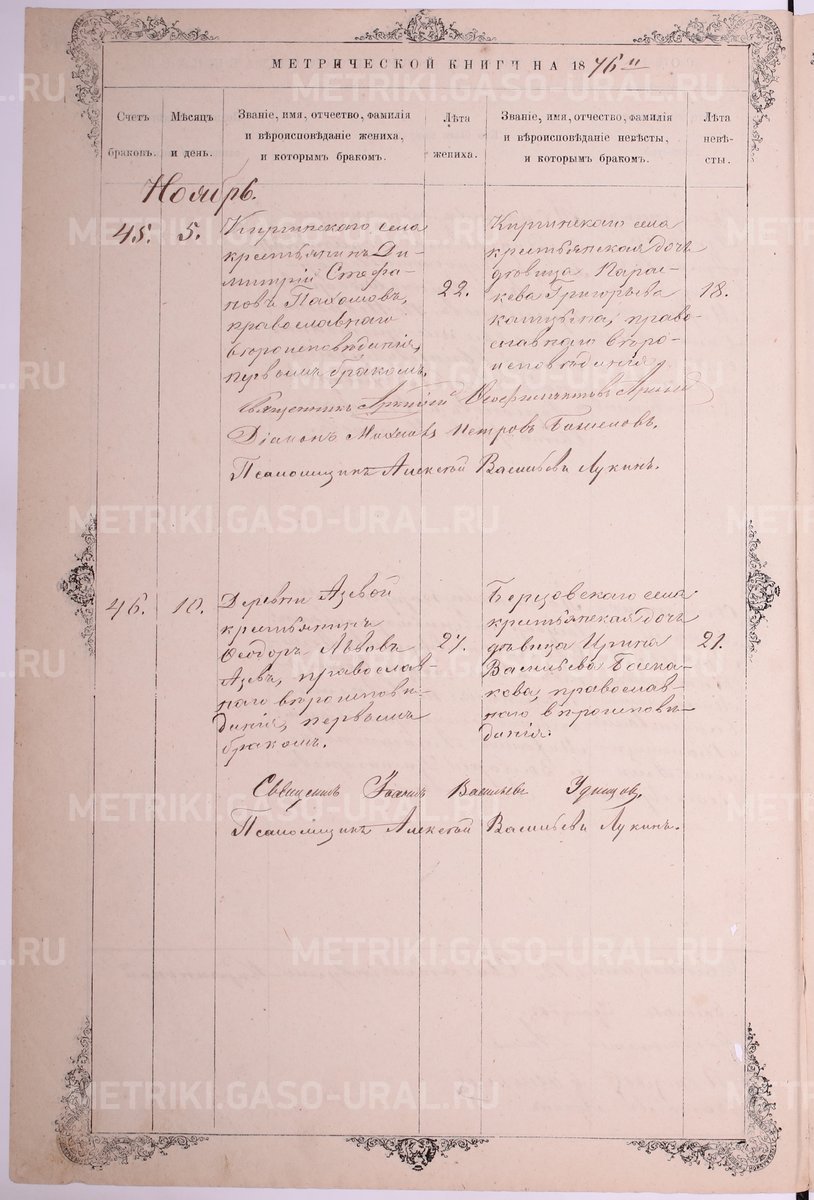 МЕТРИЧЕСКОЙ КНИГИ НА 1876 г
Счетъ браковъ.
Мѣсяцъ и день.
Званіе, имя, отчество, фамилія
и вѣроисповѣданіе жениха,
и которымъ бракомъ.
Лѣта
жениха.
Званіе, имя, отчество, фамилія
и вѣроисповѣданіе невѣсты,
и которымъ бракомъ.
Лѣта
невѣ-
сты.
Ноябрь.
45.
5.
Киргинскаго села
крестьянинъ Ди-
митрій Стефа-
новъ Пахомовъ,
православнаго
вѣроисповѣданія,
первымъ бракомъ.
22.
Киргинскаго села
крестьянская дочь
дѣвица Парас-
кева Григорьева
право-
славнаго вѣро-
исповѣданія,
18.
Священникъ Аркадій
Діаконъ Михаилъ Петровъ
Псаломщикъ Алексѣй Васильевъ Лукинъ.
46.
10.
Деревни Азевой
крестьянинъ
Ѳеодоръ Львовъ
Азевъ, православ-
наго вѣроисповѣ-
данія, первымъ
бракомъ.
21.
села
крестьянская дочь
дѣвица Ирина
Васильева
православ-
наго вѣроисповѣ-
данія.
21.
Священникъ Іоаннъ Васильевъ Удинцовъ.
Псаломщикъ Алексѣй Васильевъ Лукинъ.
METRIKI.GASO-URAL.RU